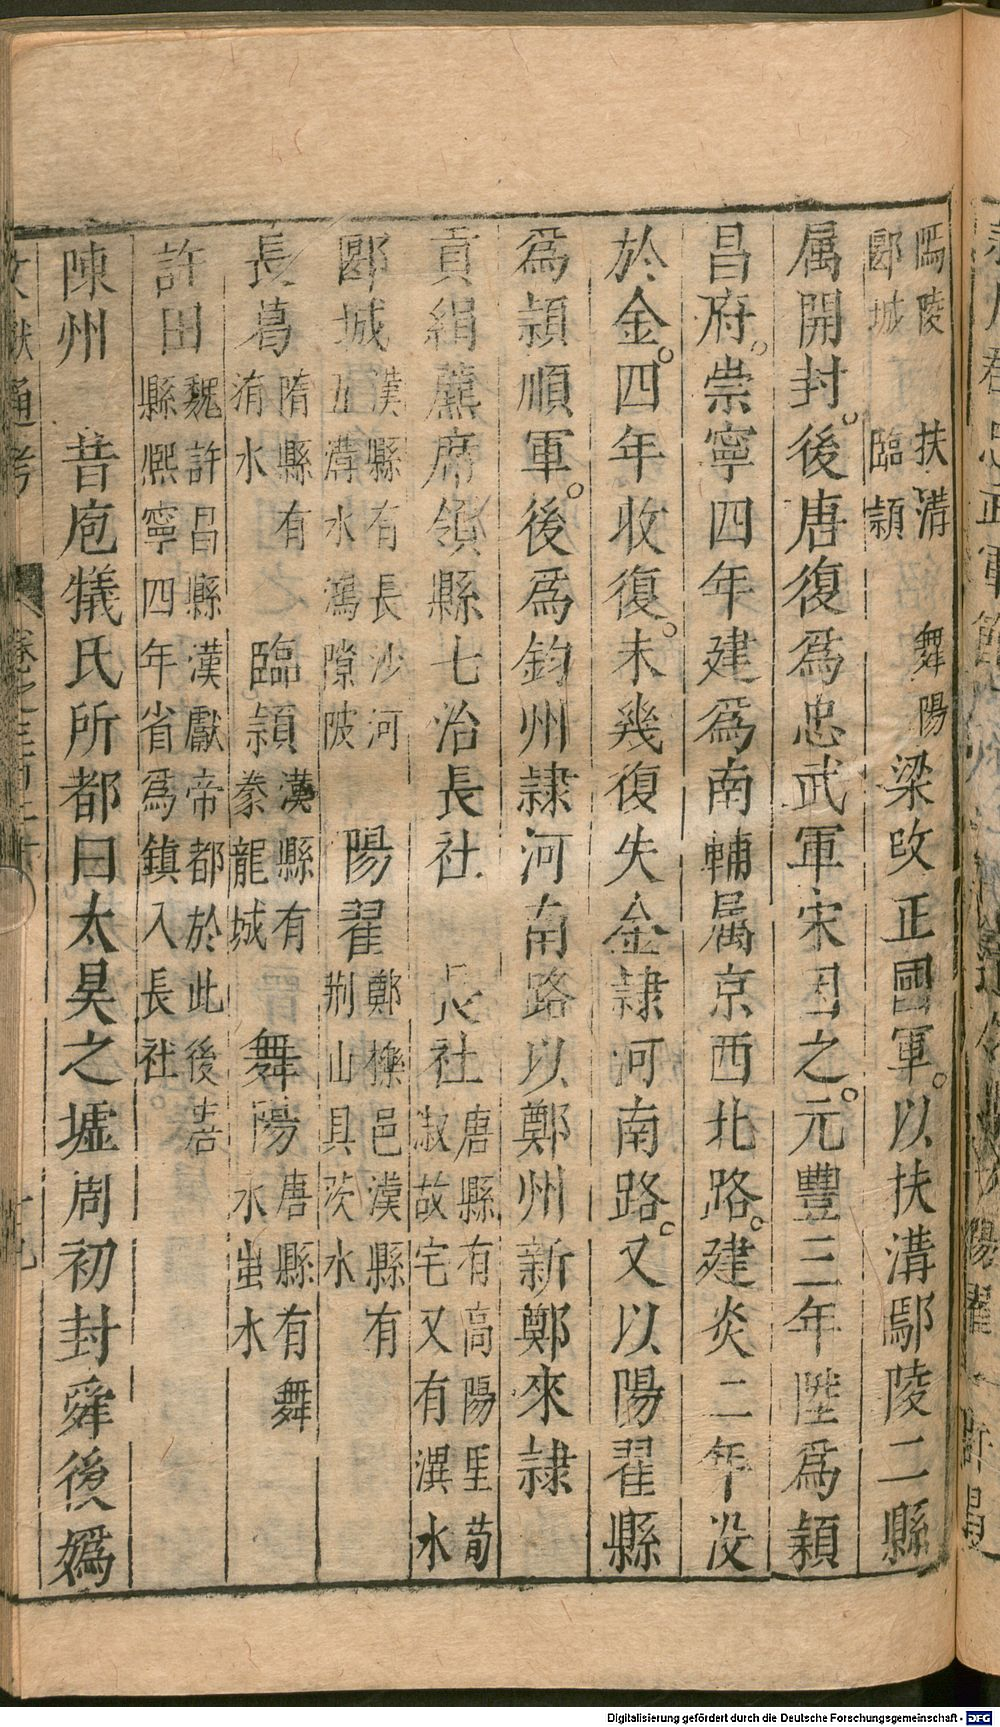 鄢陵　扶溝　舞陽
郾城　臨潁
梁改正國軍。以扶溝鄢陵二縣
属開封。後唐復爲忠武軍宋因之。元豐三年陞爲潁
昌府。崇寧四年建爲南輔属京西北路。建炎二年没
於金。四年收復。未幾復失金隷河南路。又以陽翟縣
爲潁順軍。後爲鈞州隷河南路以鄭州新鄭來隷
貢絹藨席領縣七治長社　長社
唐縣有高陽里荀
淑故宅又有潩水
郾城
漢縣有長沙河
溵水鴻隙陂
陽翟
鄭櫟邑漢縣有
荆山具茨水
長葛
隋縣有
洧水
臨潁
漢縣有
豢龍城
舞陽
唐縣有舞
水㴆水
許田
魏許昌縣漢獻帝都於此後吉
縣熈寧四年省爲鎮入長社。
陳州　昔庖犧氏所都曰太昊之墟周初封舜後嬀
文獻通考
Digitalisierung gefördert durch die Deutsche Forschungsgemeinschaft - DFG